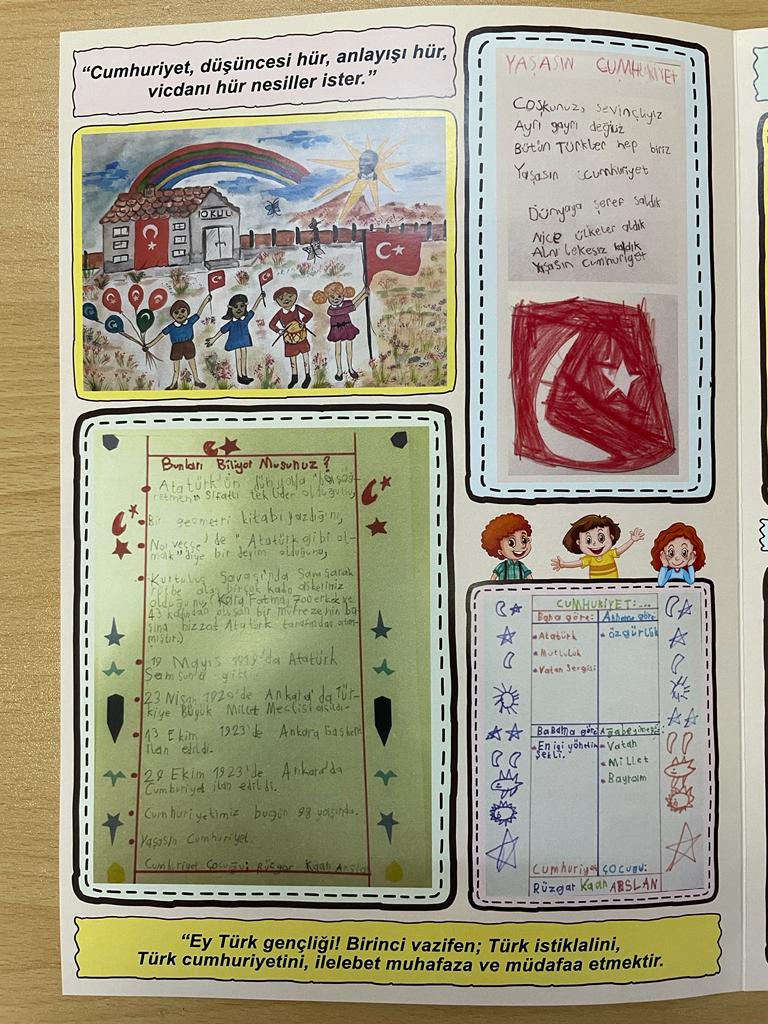 “Cumhuriyet, düşüncesi hür, anlayışı hür,
vicdanı hür nesiller ister.”
OKUL
YAŞASIN CUMHURİYET
Coşkunuz, sevinçliyiz
Ayrı gayrı değiliz
Bütün Türkler hep biriz
Yaşasın Cumhuriyet
Dünyaya şeref saldık
Nice ülkeler aldık
Alnı lekesiz kaldık
Yaşasın Cumhuriyet
Bunları Biliyor Musunuz?
Atatürk'ün dünyada "başöğ-
retmen" Sıfatlı tek lider olduğunu,
Bir geometri kitabı yazdığını,
Norveççe'de "Atatürk gibi ol-
mak" diye bir deyim olduğunu,
Kurtuluş Savaşı'nda Savaşarak
rütbe alan birçok kadın askerimiz
olduğunu, (Kara Fatma) 700 erkek ve
43 kadından oluşan bir müfrezenin ba-
şına bizzat Atatürk tarafından atan-
mıştır.)
19 Mayıs 1919'da Atatürk
Samsun'a gitti.
23 Nisan 1920'de Ankara'da Tür-
kiye Büyük Millet Meclisi açıldı.
13 Ekim 1923'de Ankara Başkent
ilan edildi.
29 Ekim 1923'de Ankara'da
Cumhuriyet ilan edildi.
Cumhuriyetimiz bugün 98 yaşında.
Yaşasın Cumhuriyet.
Cumhuriyet Çocuğu: Rüzgar Kaan Arslan
CUMHURİYET:...
Bana göre:
Atatürk
Mutluluk
Vatan Sergisi
Anneme göre
özgürlük
Babama göre
En iyi yönetim
şekli.
Ağabeyime göre:
Vatan
Millet
Bayram
Cumhuriyet çocuğu:
Rüzgar Kaan ARSLAN
“Ey Türk gençliği! Birinci vazifen; Türk istiklalini,
Türk cumhuriyetini, ilelebet muhafaza ve müdafaa etmektir.